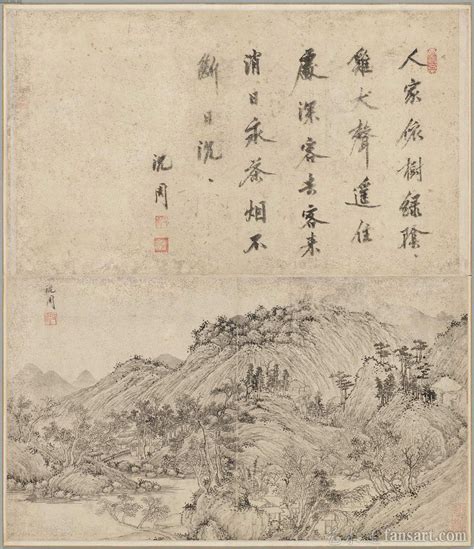 人家依樹綠陰、
雞犬聲遥住
處深客去客來
消日永茶烟不
斷日沉、
沈周
沈周
fansart.com